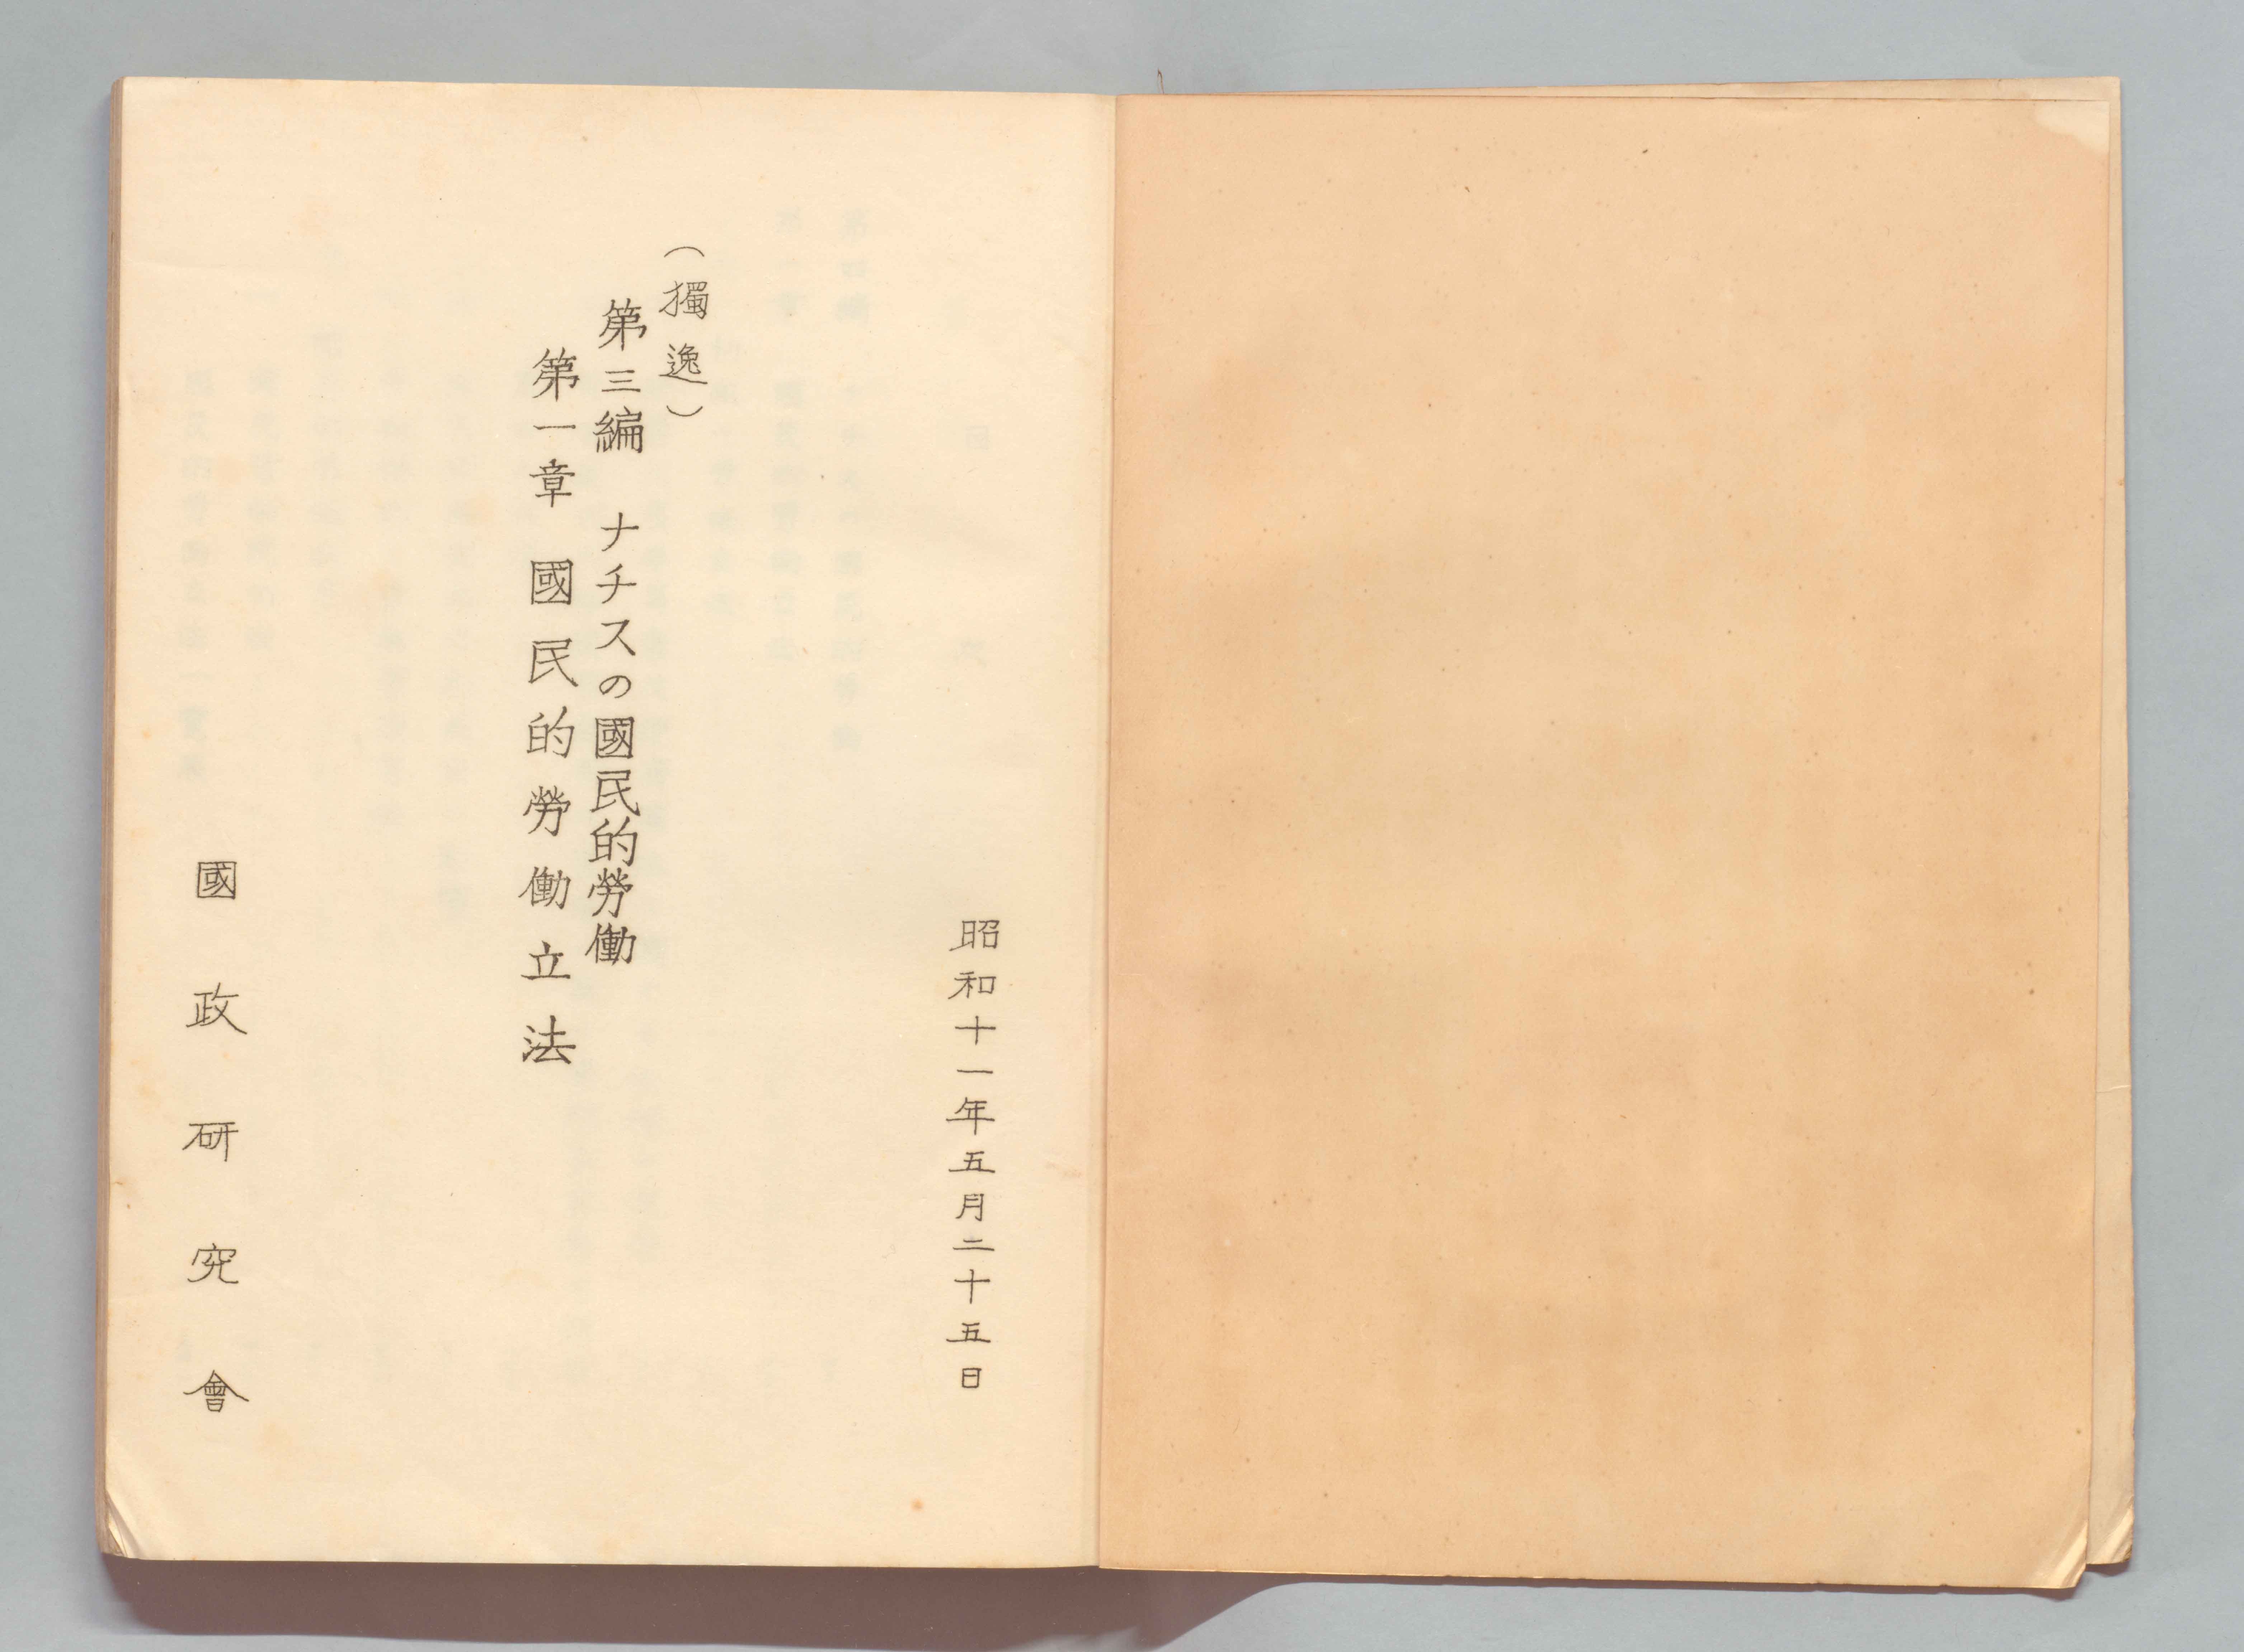 昭和十一年五月二十五日
(獨逸)
第三編 ナチスの國民的勞働
第一章 國民的勞働立法
國政研究會